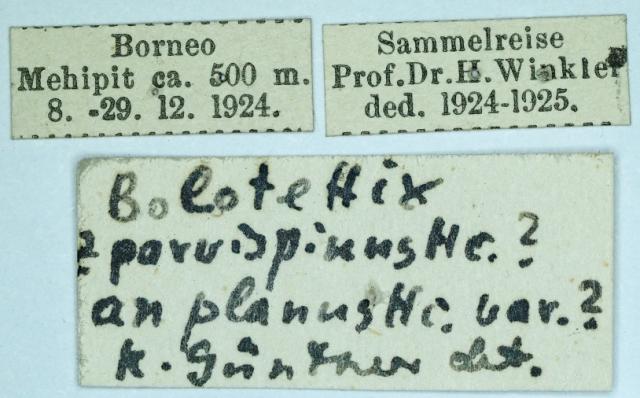 Borneo
Mehipit ca. 500 m.
8. -29. 12. 1924.
Sammelreise
Prof.Dr.H.Winkler
ded. 1924-1925.
Bolotettix
? parvispinus Hc.?
an planus Hc. var.?
K. Günther det.